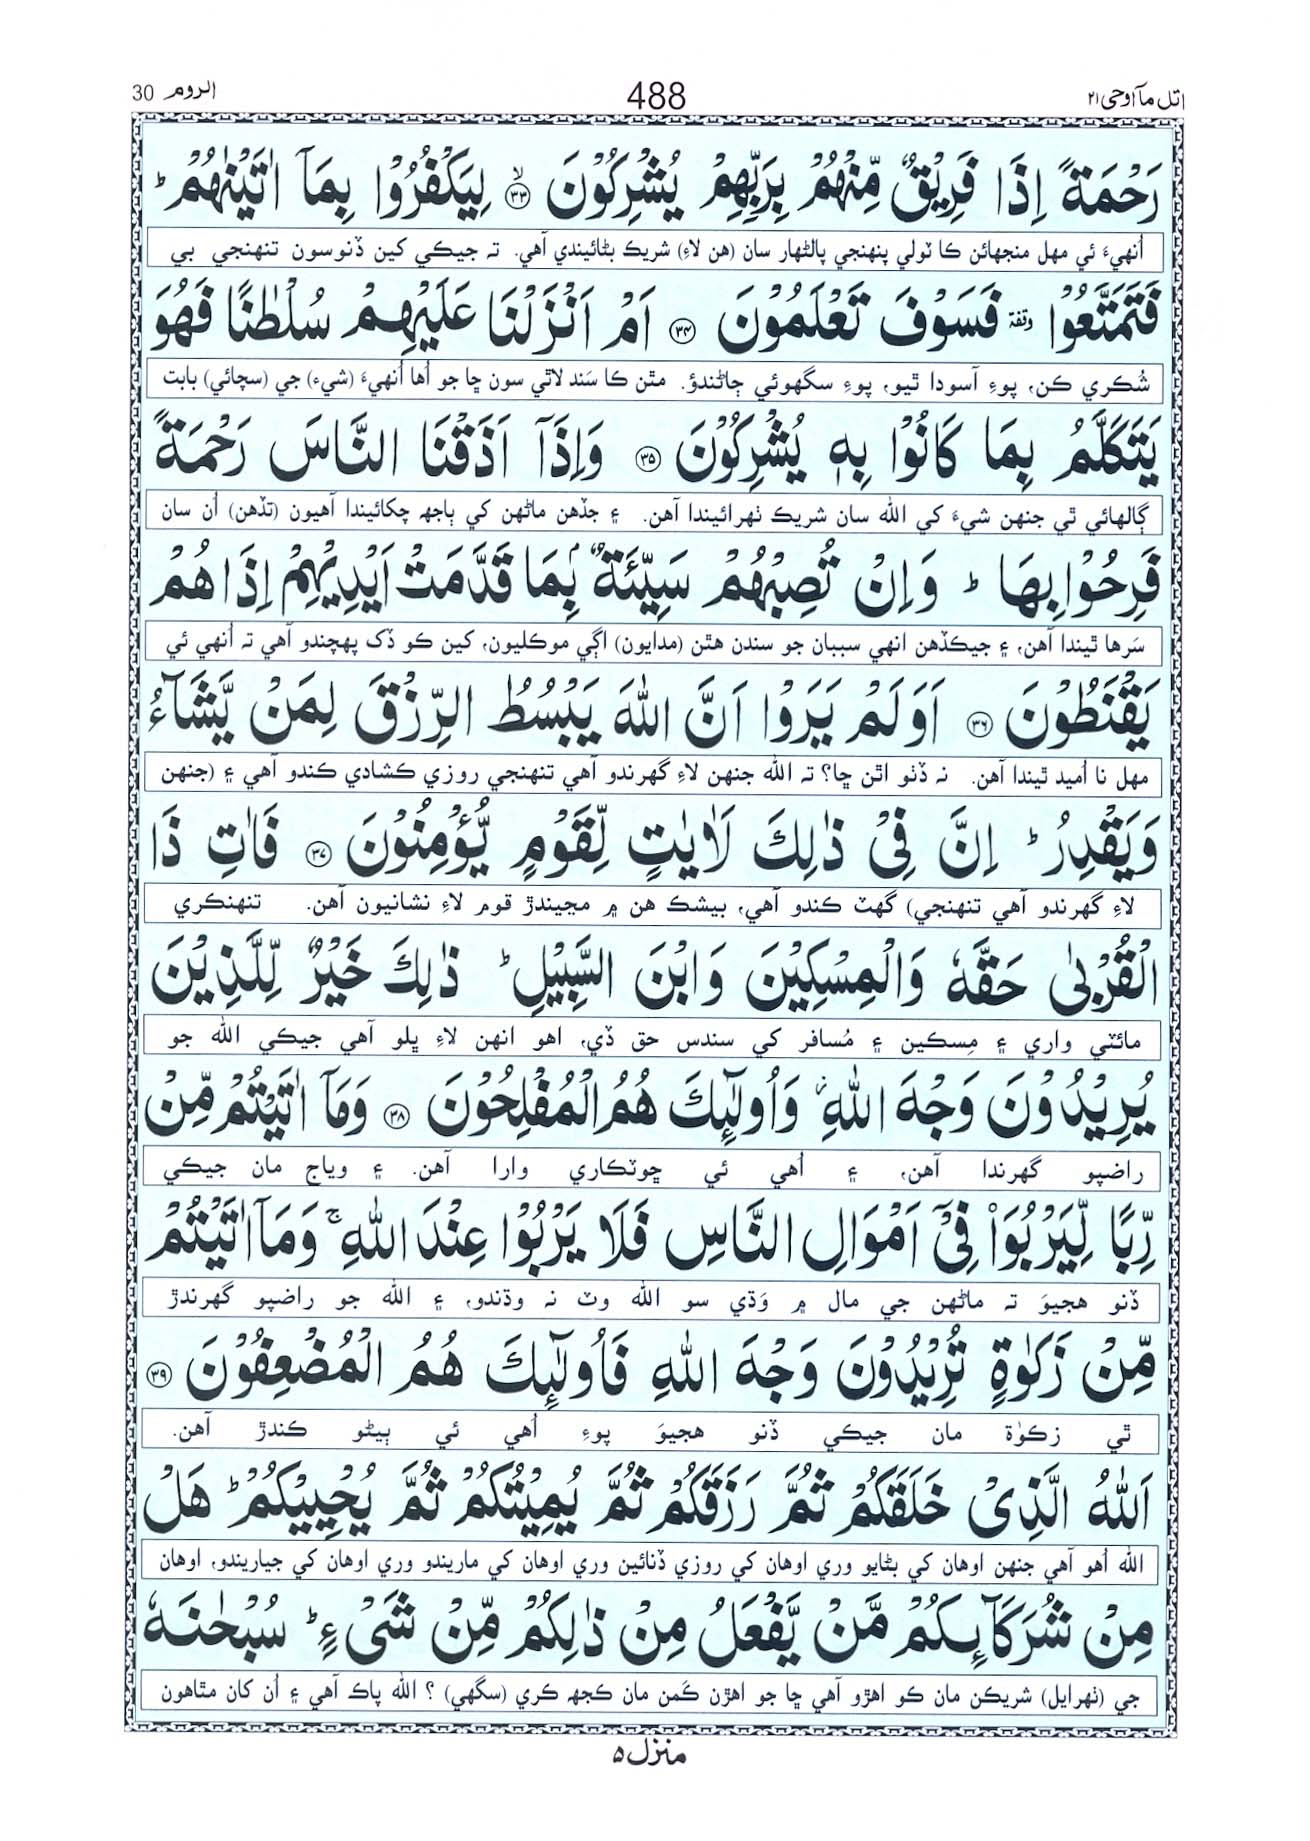 اتل مآ اوحی ۲۱
488
الروم 30
رَحْمَةً اِذَا فَرِيْقٌ مِّنْهُمْ بِرَبِّهِمْ يُشْرِكُوْنَ ۙ﴿۳۳﴾ لِيَكْفُرُوْا بِمَآ اٰتَيْنٰهُمْ ؕ
اُنهيءَ ئي مهل منجهائن ڪا ٽولي پنهنجي پالڻهار سان (هن لاءِ) شريڪ بڻائيندي آهي. تہ جيڪي کين ڏنوسون تنهنجي بي
فَتَمَتَّعُوْا ۥ وقفة فَسَوْفَ تَعْلَمُوْنَ ﴿۳۴﴾ اَمْ اَنْزَلْنَا عَلَيْهِمْ سُلْطٰنًا فَهُوَ
شُڪري ڪن، پوءِ آسودا ٿيو، پوءِ سگهوئي ڄاڻندؤ. مٿن ڪا سَند لاٿي سون ڇا جو اُها اُنهيءَ (شيء) جي (سچائي) بابت
يَتَكَلَّمُ بِمَا كَانُوْا بِهٖ يُشْرِكُوْنَ ﴿۳۵﴾ وَاِذَآ اَذَقْنَا النَّاسَ رَحْمَةً
ڳالهائي ٿي جنهن شيءَ کي الله سان شريڪ ٺهرائيندا آهن. ۽ جڏهن ماڻهن کي ٻاجھ چکائيندا آهيون (تڏهن) اُن سان
فَرِحُوْا بِهَا ؕ وَاِنْ تُصِبْهُمْ سَيِّئَةٌۢ بِمَا قَدَّمَتْ اَيْدِيْهِمْ اِذَا هُمْ
سَرها ٿيندا آهن، ۽ جيڪڏهن انهي سببان جو سندن هٿن (مدايون) اڳي موڪليون، کين ڪو ڏک پهچندو آهي تہ اُنهي ئي
يَقْنَطُوْنَ ﴿۳۶﴾ اَوَلَمْ يَرَوْا اَنَّ اللّٰهَ يَبْسُطُ الرِّزْقَ لِمَنْ يَّشَآءُ
مهل نا اُميد ٿيندا آهن. نہ ڏٺو اٿن ڇا؟ تہ الله جنهن لاءِ گهرندو آهي تنهنجي روزي ڪشادي ڪندو آهي ۽ (جنهن
وَيَقْدِرُ ؕ اِنَّ فِيْ ذٰلِكَ لَاٰيٰتٍ لِّقَوْمٍ يُّؤْمِنُوْنَ ﴿۳۷﴾ فَاٰتِ ذَا
لاءِ گهرندو آهي تنهنجي) گهٽ ڪندو آهي، بيشڪ هن ۾ مڃيندڙ قوم لاءِ نشانيون آهن. تنهنڪري
الْقُرْبٰى حَقَّهٗ وَالْمِسْكِيْنَ وَابْنَ السَّبِيْلِ ؕ ذٰلِكَ خَيْرٌ لِّلَّذِيْنَ
مائٽي واري ۽ مِسڪين ۽ مُسافر کي سندس حق ڏي، اهو انهن لاءِ ڀلو آهي جيڪي الله جو
يُرِيْدُوْنَ وَجْهَ اللّٰهِ ۡ وَاُولٰٓئِكَ هُمُ الْمُفْلِحُوْنَ ﴿۳۸﴾ وَمَآ اٰتَيْتُمْ مِّنْ
راضپو گهرندا آهن، ۽ اُهي ئي ڇوٽڪاري وارا آهن. ۽ وياج مان جيڪي
رِّبًا لِّيَرْبُوَا۟ فِيْٓ اَمْوَالِ النَّاسِ فَلَا يَرْبُوْا عِنْدَ اللّٰهِ ۚ وَمَآ اٰتَيْتُمْ
ڏنو هجيوَ تہ ماڻهن جي مال ۾ وَڌي سو الله وٽ نہ وڌندو، ۽ الله جو راضپو گهرندڙ
مِّنْ زَكٰوةٍ تُرِيْدُوْنَ وَجْهَ اللّٰهِ فَاُولٰٓئِكَ هُمُ الْمُضْعِفُوْنَ ﴿۳۹﴾
ٿي زڪوٰة مان جيڪي ڏنو هجيوَ پوءِ اُهي ئي ٻيڻو ڪندڙ آهن.
اَللّٰهُ الَّذِيْ خَلَقَكُمْ ثُمَّ رَزَقَكُمْ ثُمَّ يُمِيْتُكُمْ ثُمَّ يُحْيِيْكُمْ ؕ هَلْ
الله اُهو آهي جنهن اوهان کي بڻايو وري اوهان کي روزي ڏنائين وري اوهان کي ماريندو وري اوهان کي جياريندو، اوهان
مِنْ شُرَكَآئِكُمْ مَّنْ يَّفْعَلُ مِنْ ذٰلِكُمْ مِّنْ شَيْءٍ ؕ سُبْحٰنَهٗ
جي (ٺهرايل) شريڪن مان ڪو اهڙو آهي ڇا جو اهڙن ڪَمن مان ڪجھ ڪري (سگهي) ؟ الله پاڪ آهي ۽ اُن کان مٿاهون
منزل ۵